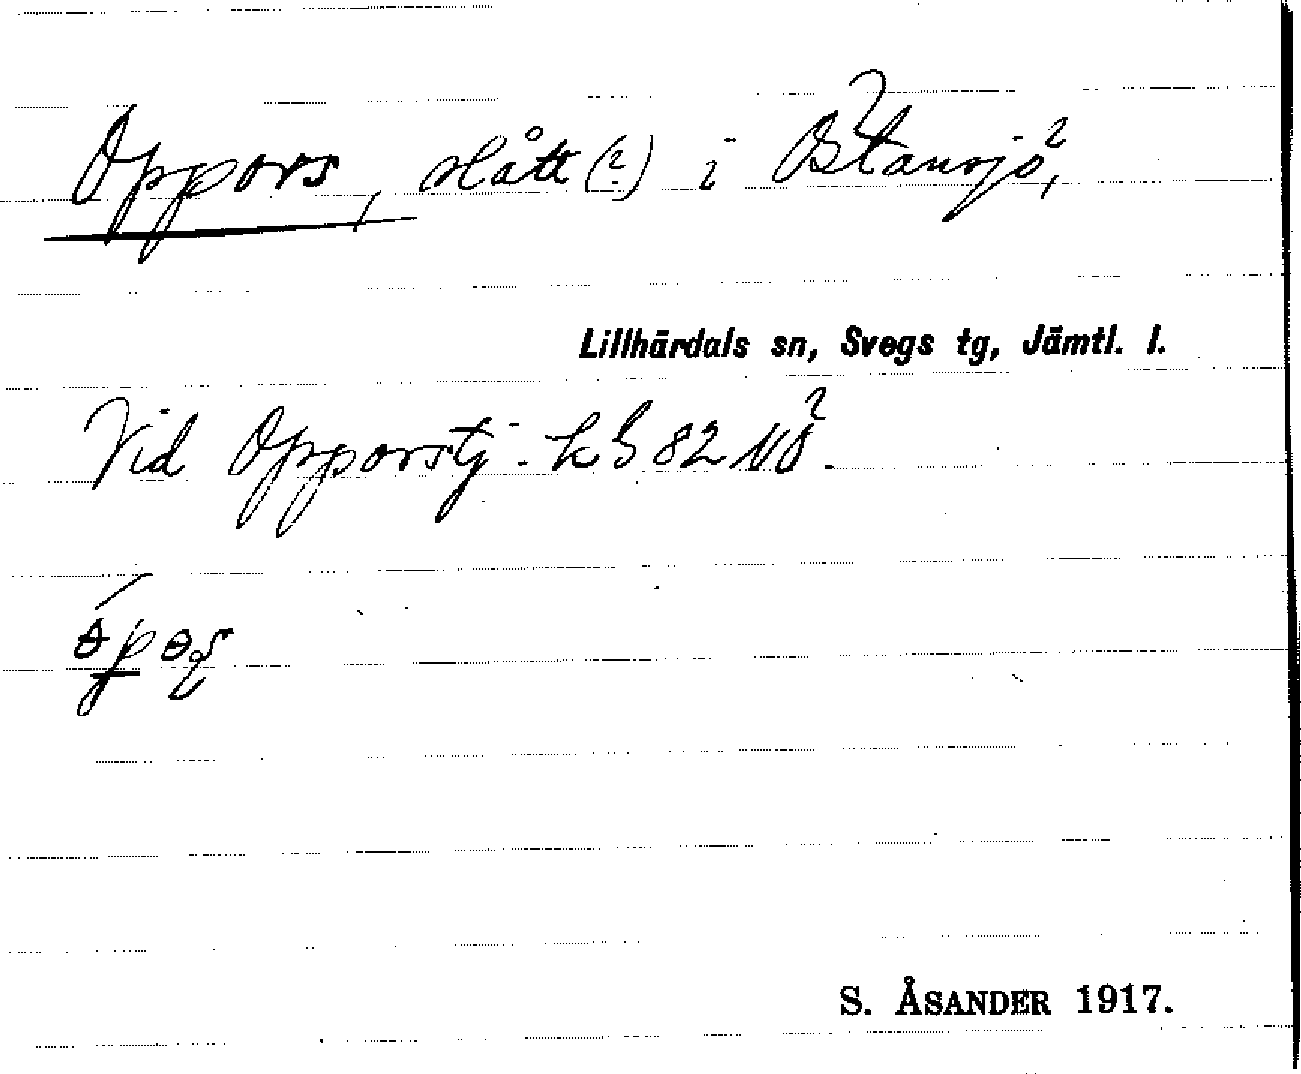 Oppors, slått (?) i Östansjö,
Lillhärdals sn, Svegs tg, Jämtl. l.
Vid Opporstj. kb 82 NÖ.
S. ÅSANDER 1917.